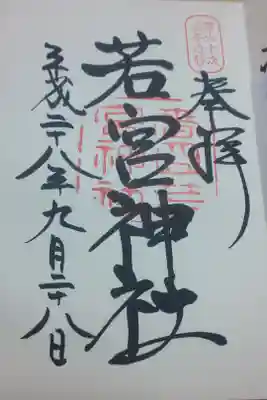 奉拝
若宮神社
平成二十八年九月二十八日